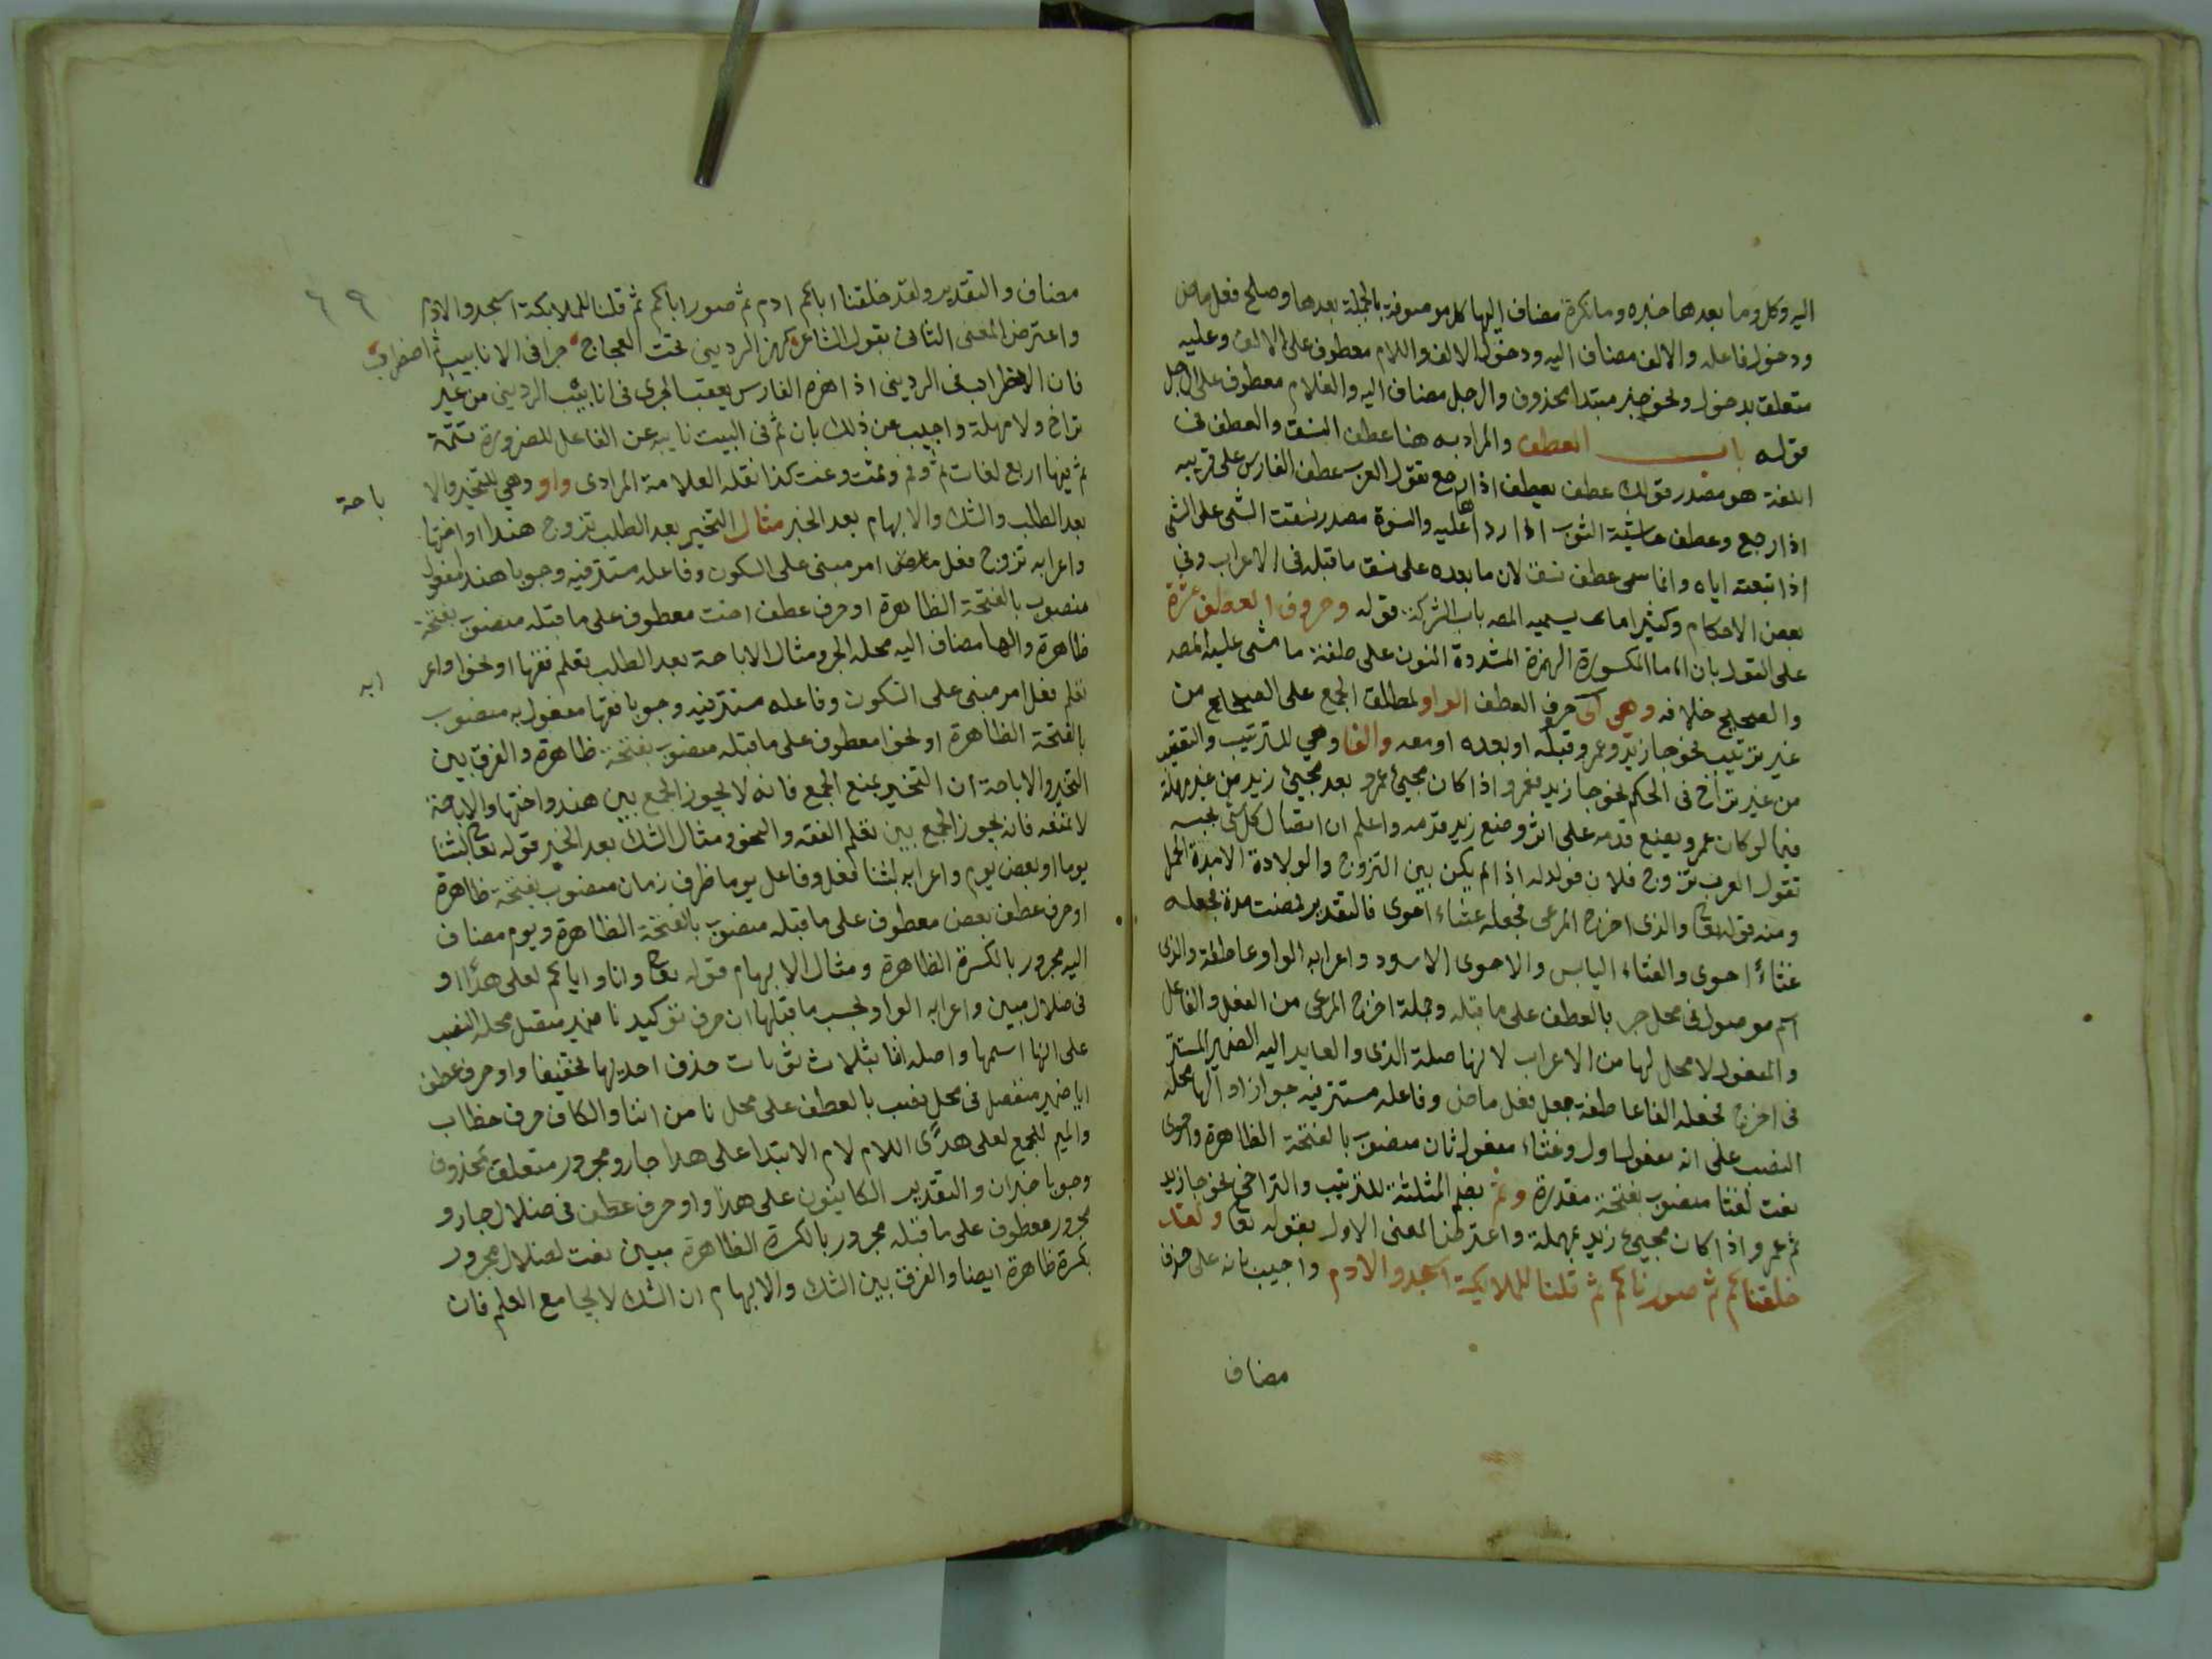 اليه وكل وما بعدها خبره وما نكرة مضاف اليها كل موصوفة بالجملة بعدها وصلح فعل ماض
ودخول فاعله والالف مضاف اليه ودخول الالف واللام معطوف على الالف وعليه
متعلق بدخول ونحو خبر مبتدا محذوف والرجل مضاف اليه والغلام معطوف على الرجل
قوله باب العطف والمراد به هنا عطف النسق والعطف في
اللغة هو مصدر قولك عطف يعطف اذا رجع تقول العرب عطف الفارس على قريبه
اذا رجع وعطف حاشية الثوب اذا ردها عليه والنسق مصدر نسقت الشى على الشى
اذا تبعته اياه وانما سمى عطف نسق لان ما بعده على نسق ما قبله في الاعراب وفي
بعض الاحكام وكثيرا ما يسميه المص باب الشركة قوله وحروف العطف عشرة
على القول بان اما المكسورة الهمزة المشددة النون على طفنة ما مشى عليه المص
والصحيح خلافه وهي اى حرف العطف الواو لمطلق الجمع على الصحيح من
غير ترتيب نحو جا زيد وعمرو قبله او بعده او معه والفا وهي للترتيب والتعقيب
من غير تراخ في الحكم نحو جا زيد فعمرو اذا كان مجيئ عمرو بعد مجيئ زيد من غير مهلة
فيما لو كان عمرو يضع قدمه على اثر وضع زيد قدمه واعلم ان اتصال كل شى بحسبه
تقول العرب تزوج فلان فولد له اذا لم يكن بين التزوج والولادة الا مدة الحمل
ومنه قوله تعا والذى اخرج المرعى فجعله غثاء احوى فالتقدير فمضت مدة فجعله
غثاءً احوى والغثاء اليابس والاحوى الاسود واعرابه الواو عاطفة والذى
اسم موصول في محل جر بالعطف على ما قبله وجملة اخرج المرعى من الفعل والفاعل
والمفعول لا محل لها من الاعراب لانها صلة الذى والعايد اليه الضمير المستتر
في اخرج فجعله الفا عاطفة جعل فعل ماض وفاعله مستتر فيه جوازا والها محله
النصب على انه مفعول اول وغثاء مفعول ثان منصوب بالفتحة الظاهرة واحوى
نعت لغثا منصوب بفتحة مقدرة وثم بضم المثلثة للترتيب والتراخي نحو جا زيد
ثم عمرو اذا كان مجيئ زيد بمهلة واعترض المعنى الاول بقوله تعا ولقد
خلقناكم ثم صورناكم ثم قلنا للملايكة اسجدوا لادم واجيب بانه على حذف
مضاف
٦٩
مضاف والتقدير ولقد خلقنا اباكم ادم ثم صورنا اباكم ثم قلنا للملايكة اسجدوا لادم
واعترض المعنى الثانى بقول الشاعر كهز الردينى تحت العجاج جرا في الانابيب ثم اضطرب
فان الاضطراب في الردينى اذا هزه الفارس يعقب الجرى في انابيب الردينى من غير
تراخ ولا مهلة واجيب عن ذلك بان ثم في البيت نايبه عن الفا على للضرورة تتمة
ثم فيها اربع لغات ثم وفم وثمت وثمت كذا نقله العلامة المرادى واو وهي للتخير والا
باحة
بعد الطلب والشك والابهام بعد الخبر مثال التخير بعد الطلب تزوج هندا او اختها
واعرابه تزوج فعل امر مبنى على السكون وفاعله مستتر فيه وجوبا هندا مفعول
منصوب بالفتحة الظاهرة او حرف عطف اخت معطوف على ما قبله منصوب بفتحة
ظاهرة والها مضاف اليه محله الجر ومثال الاباحة بعد الطلب تعلم فقها او نحوا واعر
ابه
تعلم فعل امر مبنى على السكون وفاعله مستتر فيه وجوبا فقها مفعول به منصوب
بالفتحة الظاهرة او نحوا معطوف على ما قبله منصوب بفتحة ظاهرة والفرق بين
التخير والاباحة ان التخير يمنع الجمع فانه لا يجوز الجمع بين هند واختها والاباحة
لا تمنعه فانه يجوز الجمع بين تعلم الفقه والنحو ومثال الشك بعد الخبر قوله تعا لبثنا
يوما او بعض يوم واعرابه لبثنا فعل وفاعل يوما ظرف زمان منصوب بفتحة ظاهرة
او حرف عطف بعض معطوف على ما قبله منصوب بالفتحة الظاهرة ويوم مضاف
اليه مجرور بالكسرة الظاهرة ومثال الابهام قوله تعا وانا واياكم لعلى هدًا او
في ضلال مبين واعرابه الواو بحسب ما قبلها ان حرف توكيد نا ضمير متصل محله النصب
على انها اسمها واصله اننا بثلاث نونات حذف احديها تخفيفا واو حرف عطف
ايا ضمير منفصل في محل نصب بالعطف على محل نا من اننا والكاف حرف خطاب
والميم للجمع لعلى هدًى اللام لام الابتدا على هدا جار ومجرور متعلق بمحذوف
وجوبا خبران والتقدير لكاينون على هدا واو حرف عطف في ضلال جار و
مجرور معطوف على ما قبله مجرور بالكسرة الظاهرة مبين نعت لضلال مجرور
بكسرة ظاهرة ايضا والفرق بين الشك والابهام ان الشك لا يجامع العلم فان